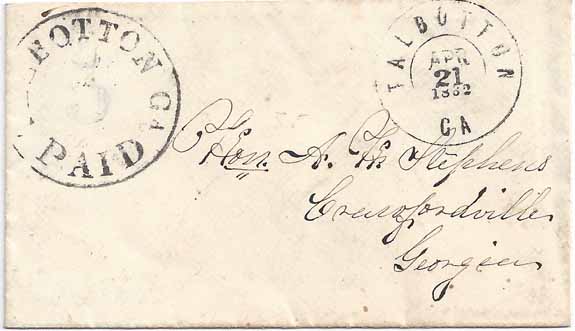 LBOTTON GA
5
PAID
TALBOTTON
APR
21
1862
GA
Hon. A. H. Stephens
Crawfordville
Georgia